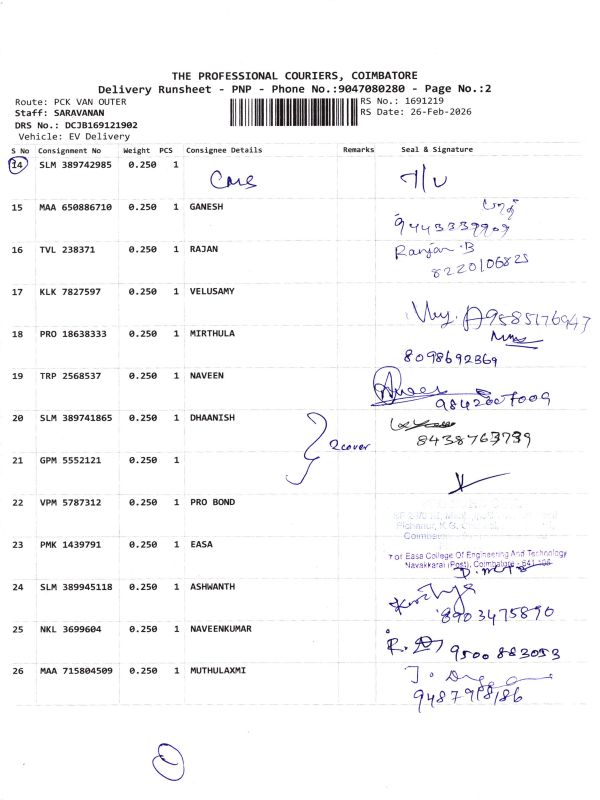 THE PROFESSIONAL COURIERS, COIMBATORE
Delivery Runsheet - PNP - Phone No.:9047080280 - Page No.:2
Route: PCK VAN OUTER
RS No.: 1691219
Staff: SARAVANAN
RS Date: 26-Feb-2026
DRS No.: DCJB169121902
Vehicle: EV Delivery
S No Consignment No Weight PCS Consignee Details Remarks Seal & Signature
14 SLM 389742985 0.250 1
CMS
15 MAA 650886710 0.250 1 GANESH
9443339909
16 TVL 238371 0.250 1 RAJAN Ranjan.B
8220106825
17 KLK 7827597 0.250 1 VELUSAMY
9585176947
18 PRO 18638333 0.250 1 MIRTHULA
8098692369
19 TRP 2568537 0.250 1 NAVEEN
9842607009
20 SLM 389741865 0.250 1 DHAANISH
8438763739
2 cover
21 GPM 5552121 0.250 1
22 VPM 5787312 0.250 1 PRO BOND
Coimbatore
23 PMK 1439791 0.250 1 EASA
For Easa College Of Engineering And Technology
Navakkarai (Post), Coimbatore - 641 105
24 SLM 389945118 0.250 1 ASHWANTH
8903475890
25 NKL 3699604 0.250 1 NAVEENKUMAR
9500883053
26 MAA 715804509 0.250 1 MUTHULAXMI